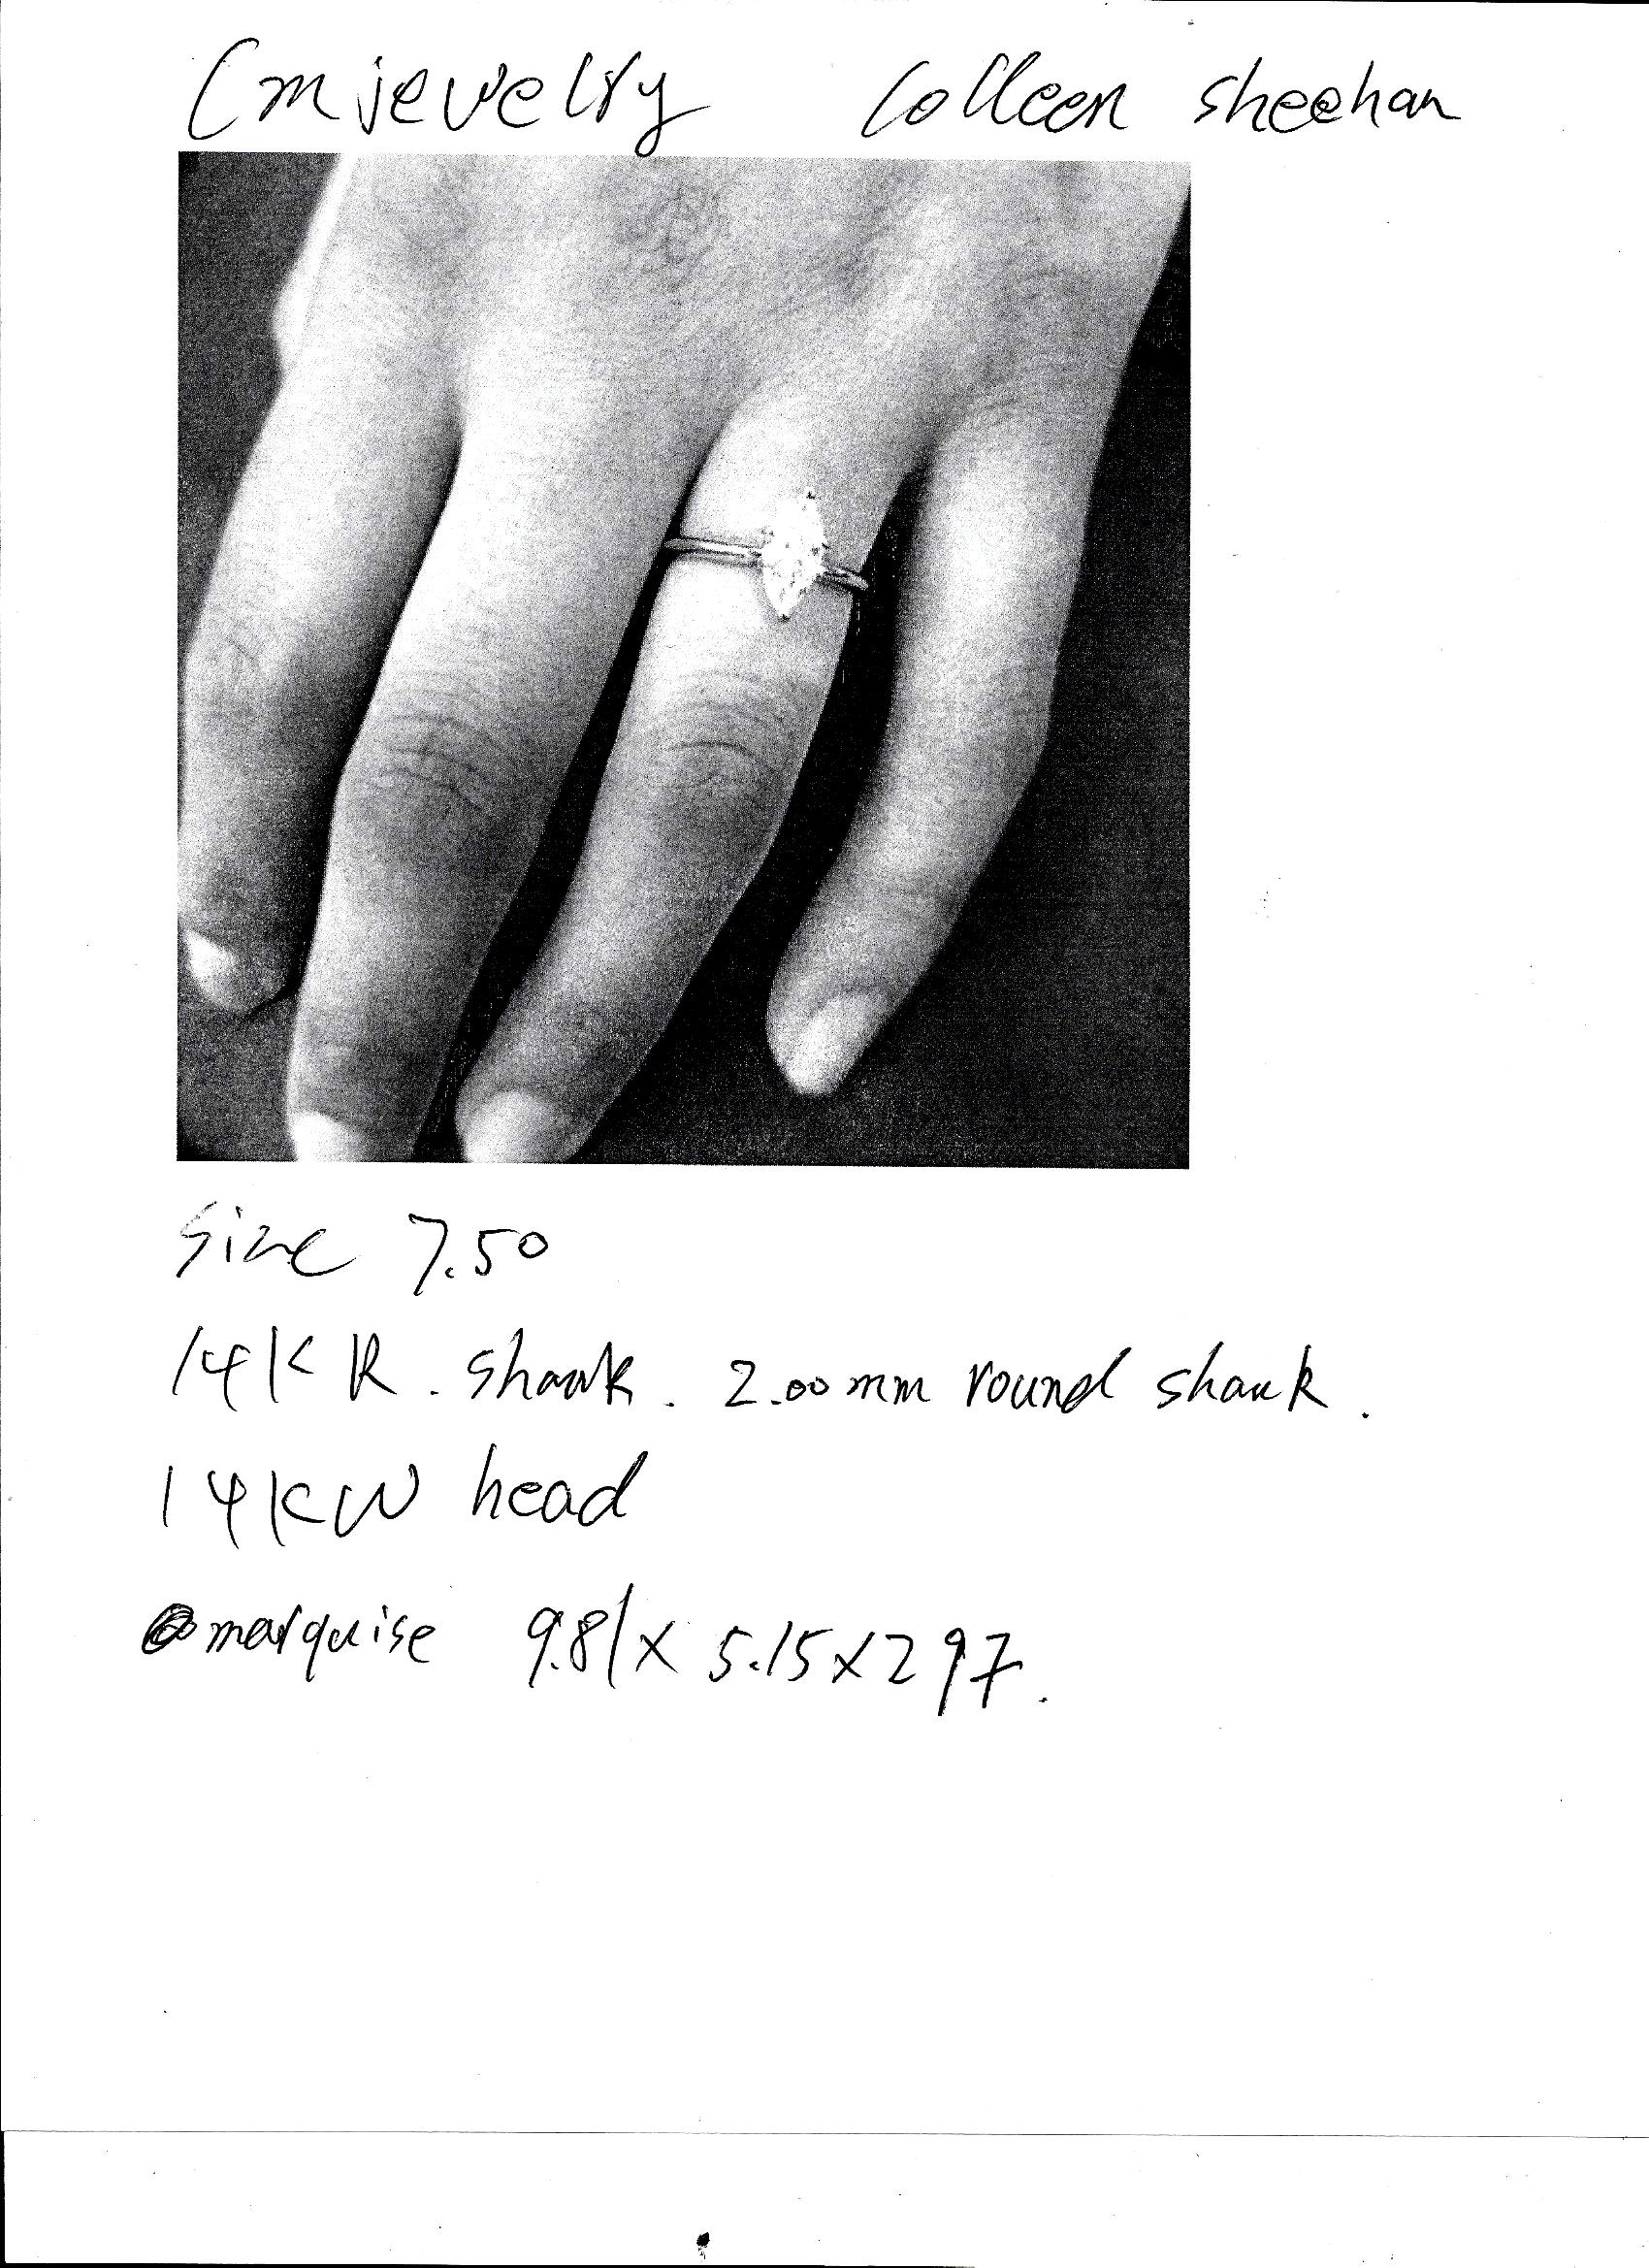 Cmjewelry Colleen sheehan
Size 7.50
14K R. shank. 2.00mm round shank.
14KW head
marquise 9.81x 5.15x297.